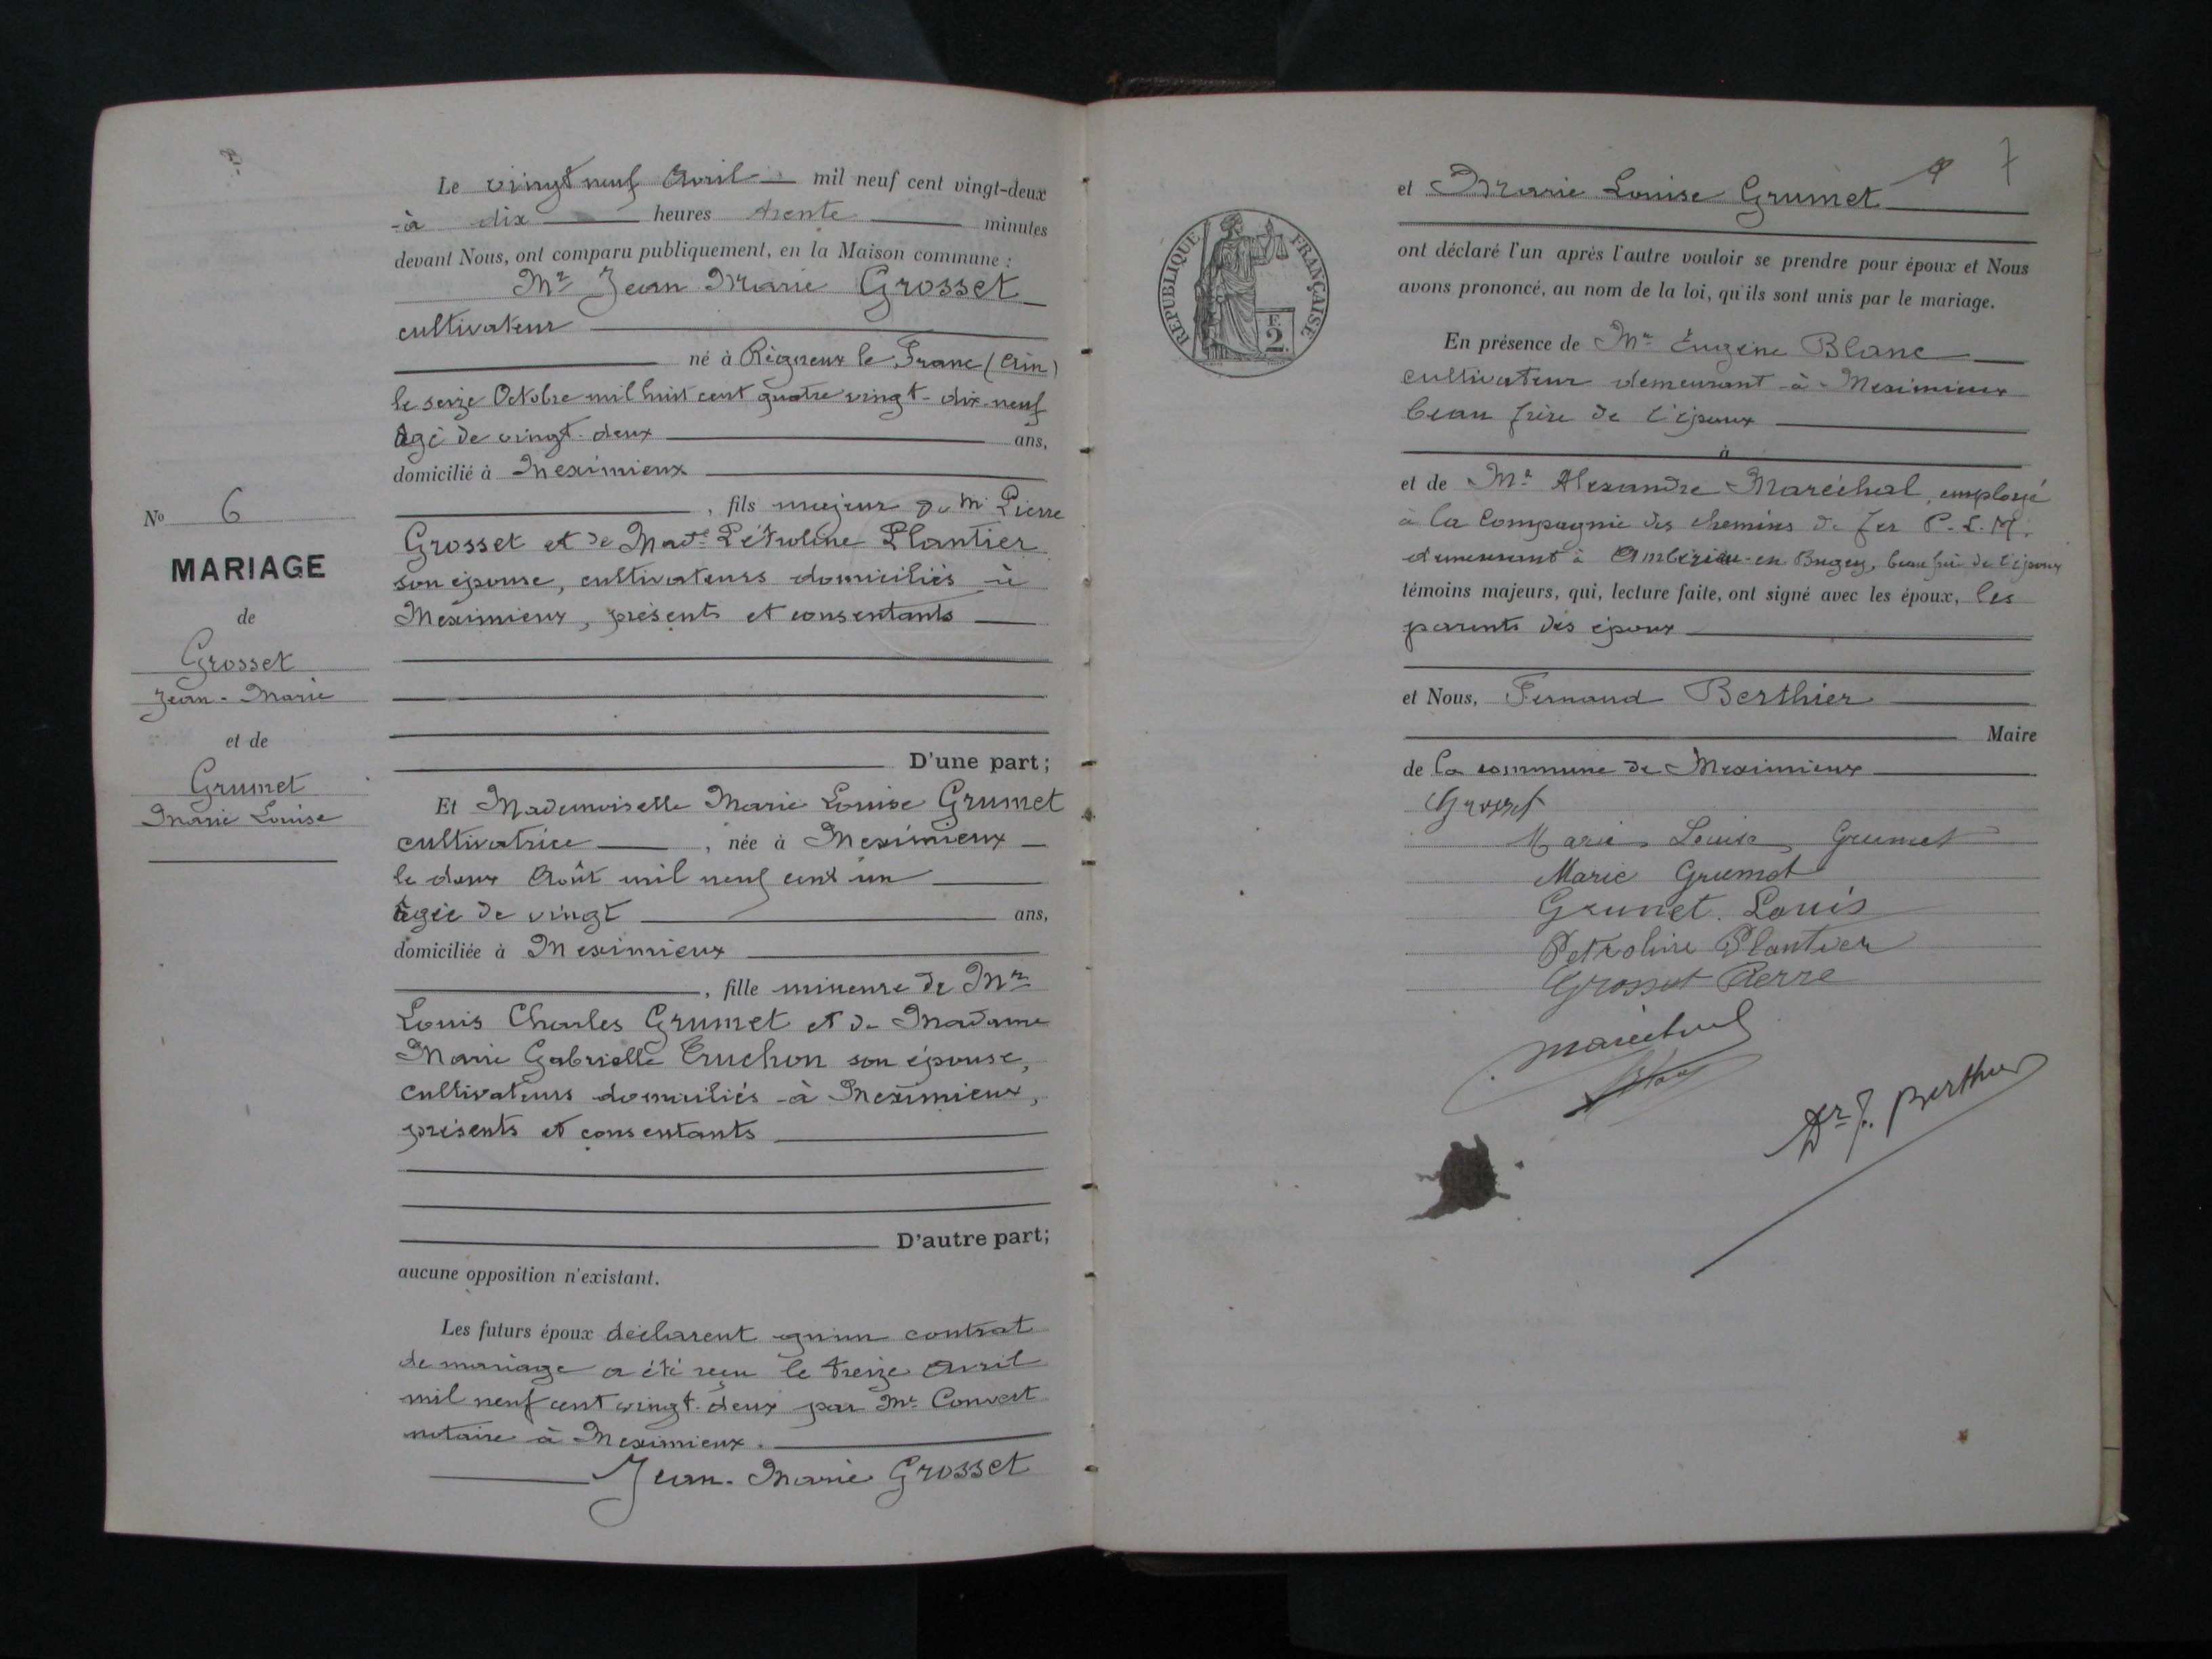 N° 6
MARIAGE
de
Grosset
Jean-Marie
et de
Grumet
Marie Louise
Le vingt neuf Avril mil neuf cent vingt-deux
à dix heures trente minutes
devant Nous, ont comparu publiquement, en la Maison commune :
Mr Jean Marie Grosset
cultivateur
né à Rignieux le Franc (Ain)
le seize Octobre mil huit cent quatre vingt-dix-neuf
âgé de vingt-deux ans,
domicilié à Meximieux
, fils majeur de Mr Pierre
Grosset et de Made Pétroline Plantier
son épouse, cultivateurs domiciliés à
Meximieux, présents et consentants
D'une part;
Et Mademoiselle Marie Louise Grumet
cultivatrice, née à Meximieux
le deux Août mil neuf cent un
âgée de vingt ans,
domiciliée à Meximieux
, fille mineure de Mr
Louis Charles Grumet et de Madame
Marie Gabrielle Truchon son épouse,
cultivateurs domiciliés à Meximieux,
présents et consentants
D'autre part;
aucune opposition n'existant.
Les futurs époux déclarent qu'un contrat
de mariage a été reçu le treize Avril
mil neuf cent vingt-deux par Me Convert
notaire à Meximieux.
Jean-Marie Grosset
7
RÉPUBLIQUE FRANÇAISE
F.
2.
et Marie Louise Grumet
ont déclaré l'un après l'autre vouloir se prendre pour époux et Nous
avons prononcé, au nom de la loi, qu'ils sont unis par le mariage.
En présence de Mr Eugène Blanc
cultivateur demeurant à Meximieux
beau frère de l'époux
à
et de Mr Alexandre Maréchal, employé
à la Compagnie des chemins de fer P.L.M.
demeurant à Ambérieu-en-Bugey, beau frère de l'époux
témoins majeurs, qui, lecture faite, ont signé avec les époux, les
parents des époux
et Nous, Fernand Berthier
Maire
de la commune de Meximieux
Grosset
Marie Louise Grumet
Marie Grumet
Grumet Louis
Petroline Plantier
Grosset Pierre
Maréchal
Blanc
Dr F. Berthier